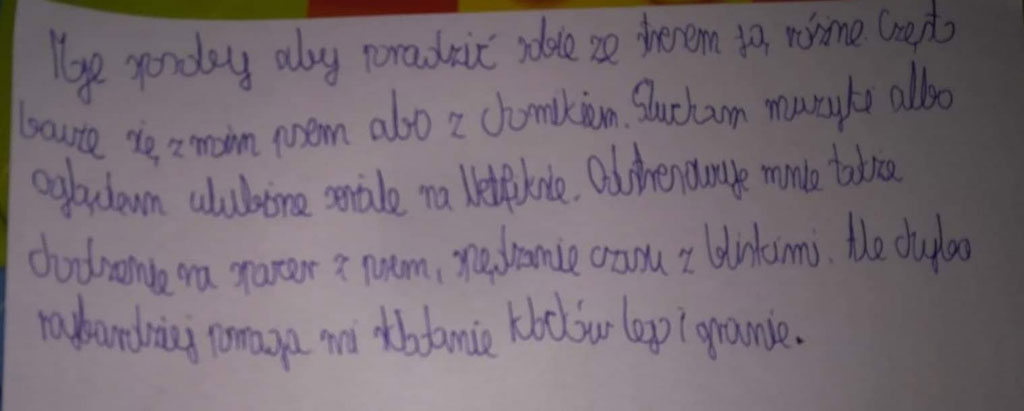 Moje sposoby aby poradzić sobie ze stresem są różne. Często
bawię się z moim psem albo z chomikiem. Słucham muzyki albo
oglądam ulubione seriale na Netfliksie. Odstresowuje mnie także
chodzenie na spacer z psem, spędzanie czasu z bliskimi. Ale chyba
najbardziej pomaga mi składanie klocków lego i granie.